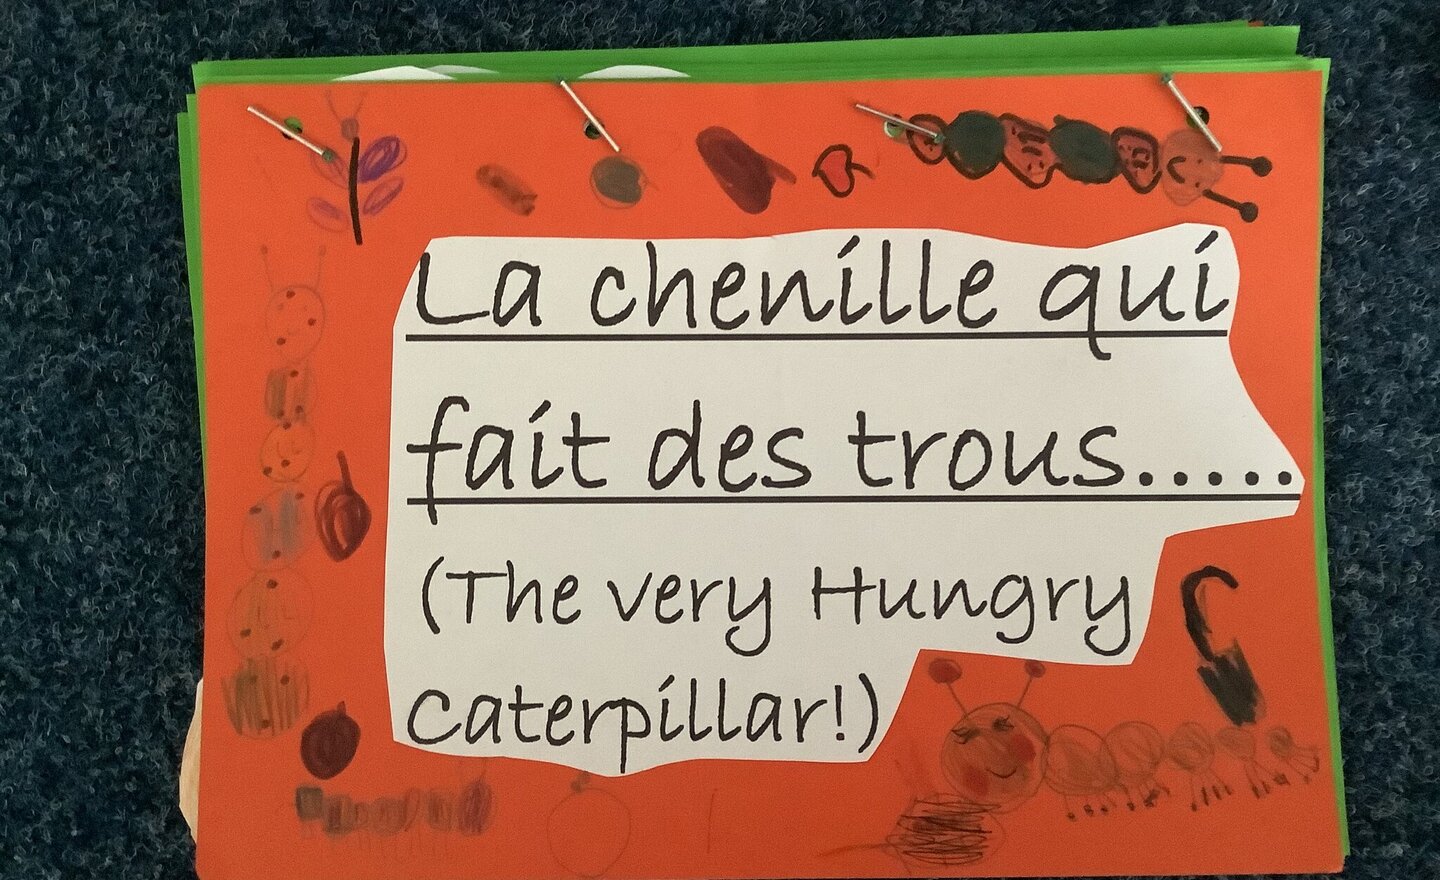 La chenille qui
fait des trous.....
(The very Hungry
Caterpillar!)